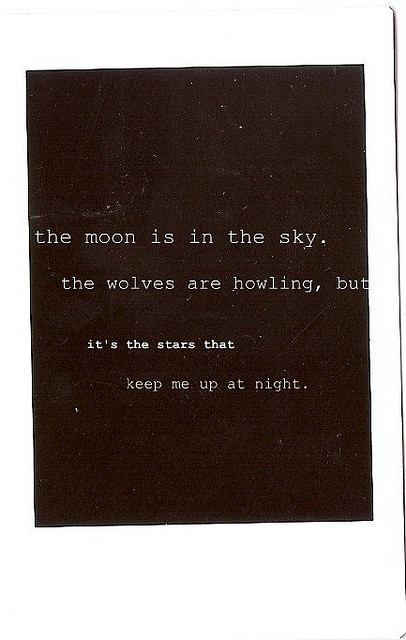 the moon is in the sky.
the wolves are howling, but
it's the stars that
keep me up at night.